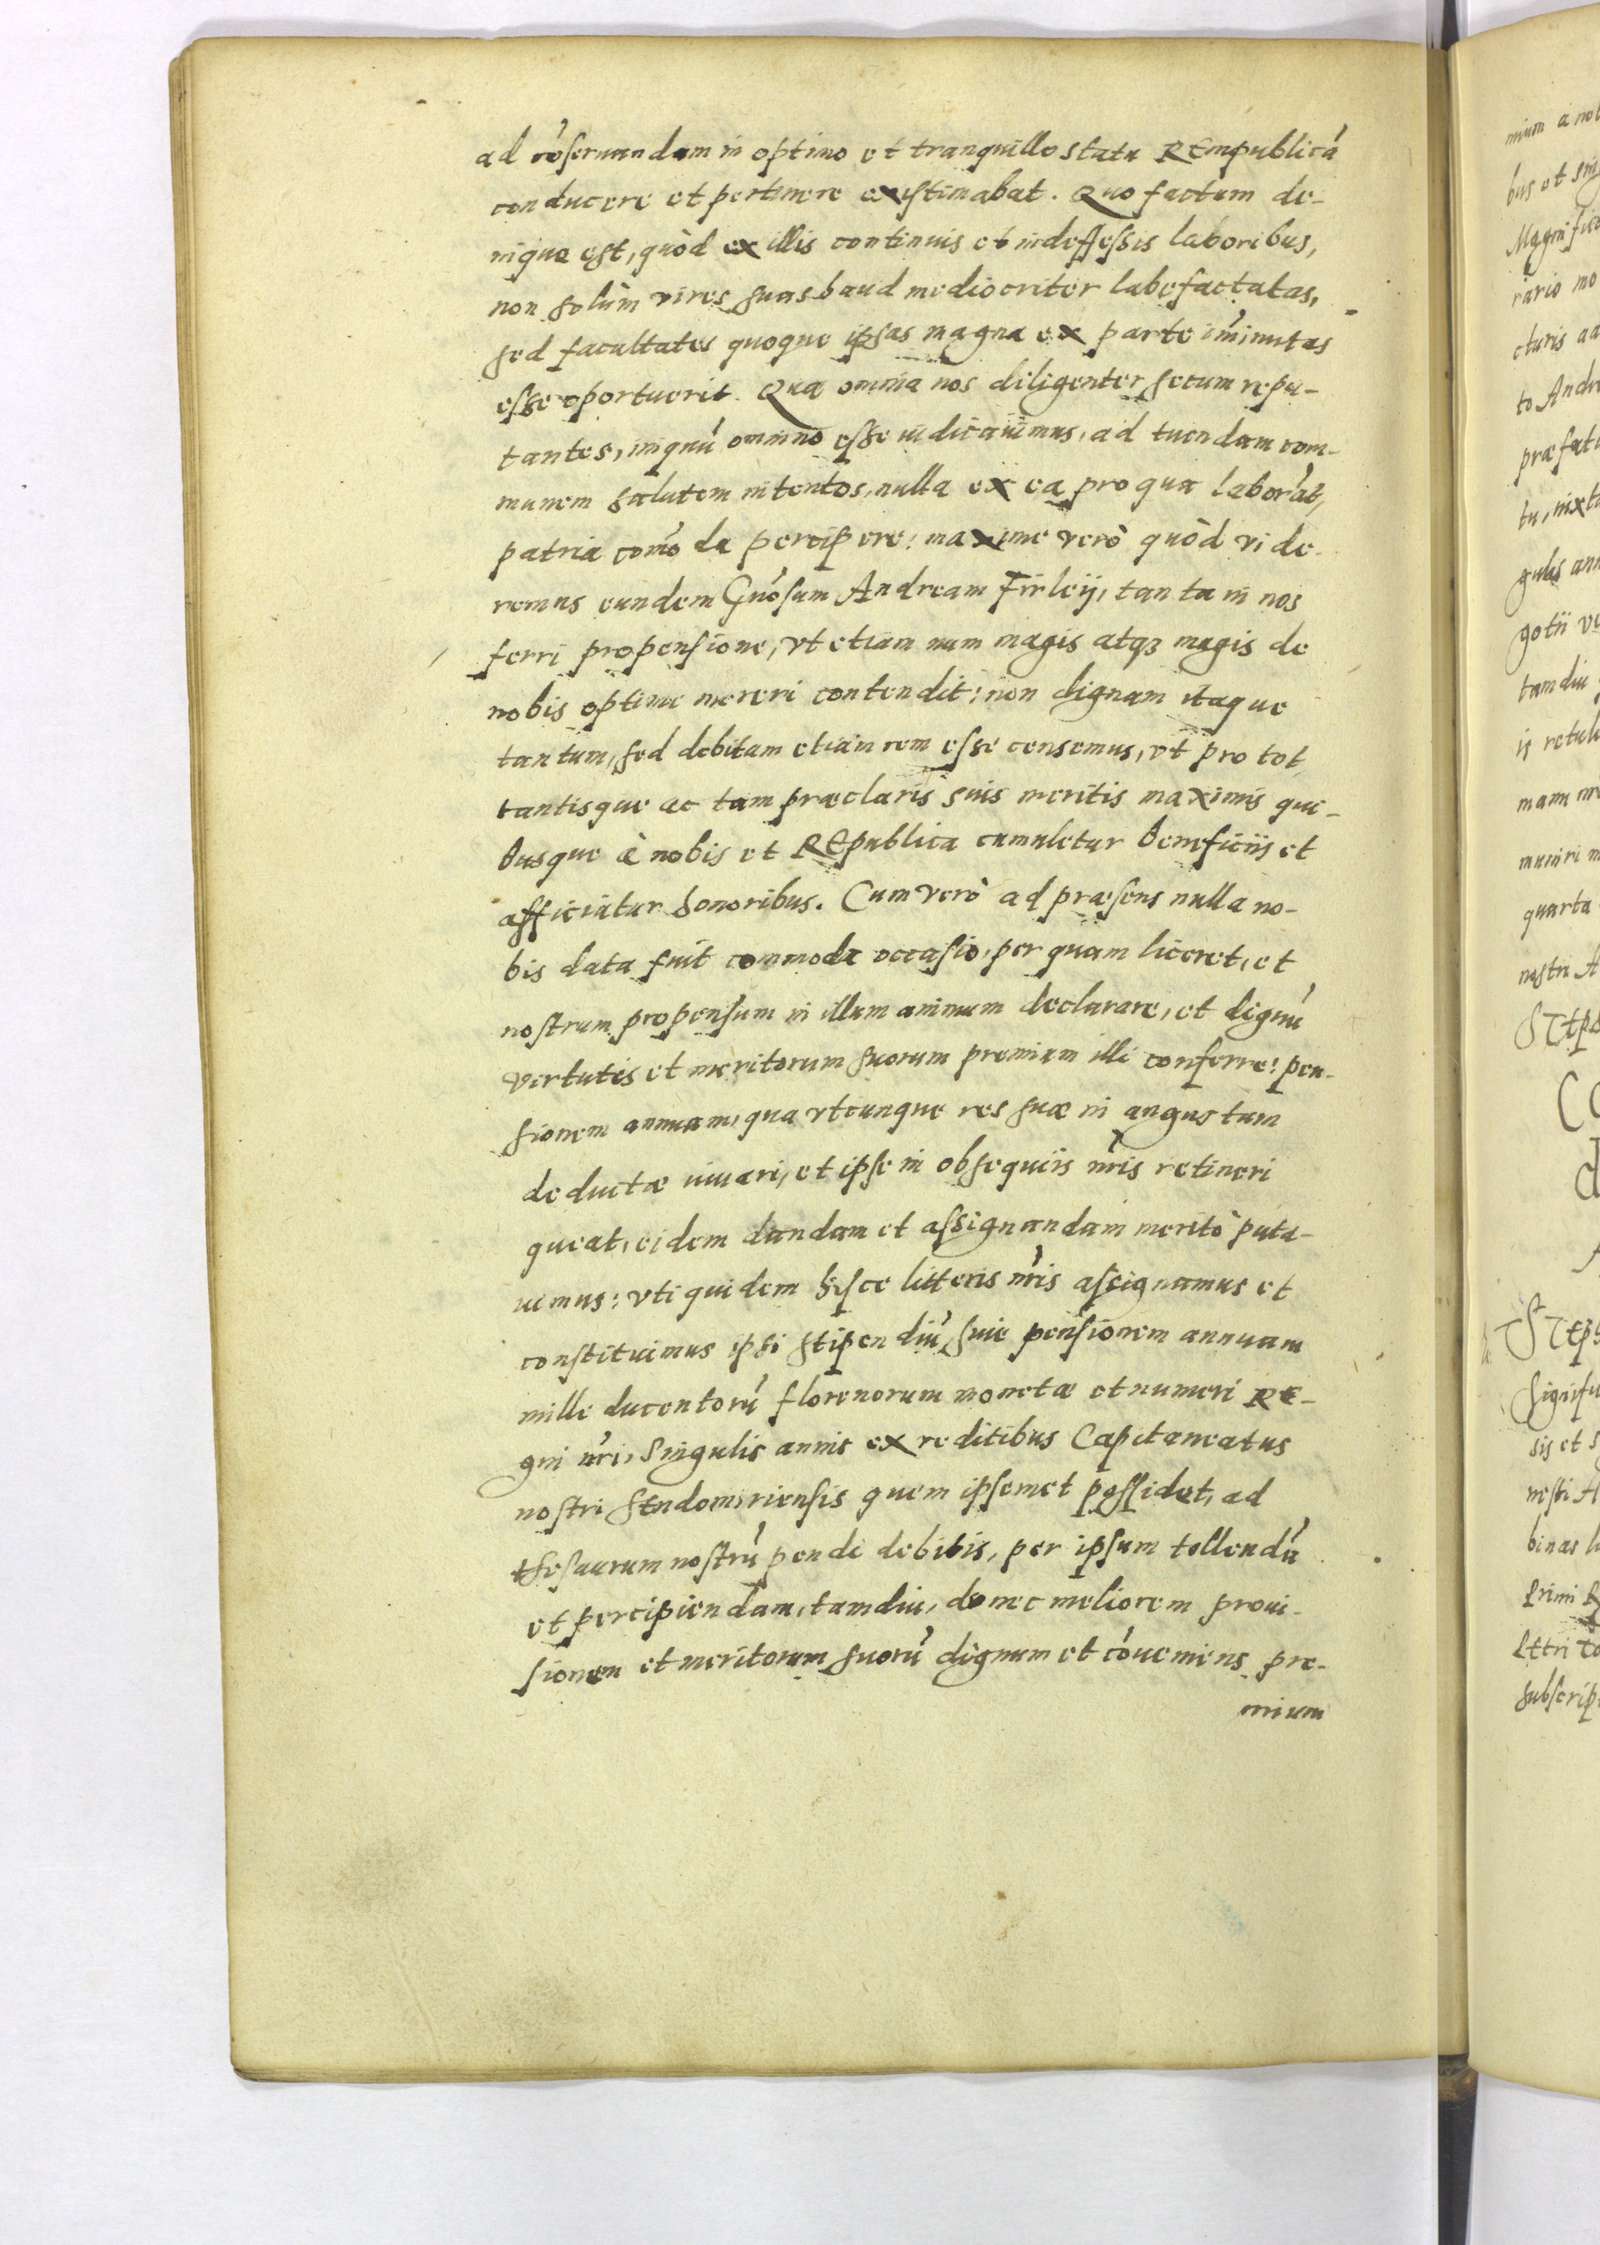 ad cōseruandam in optimo et tranquillo statu REmpublicā
conducere et pertinere existimabat. Quo factum de-
nique est, quòd ex illis continuis et indefessis laboribus,
non solùm vires suas haud mediocriter labefactatas,
sed facultates quoque ipsas magna ex parte im̄inutas
esse oportuerit. Quæ omnia nos diligenter secum repu-
tantes, iniquū omnino esse iudicauimus, ad tuendam com-
munem salutem intentos, nulla ex ea pro qua laborāt,
patria com̄oda percipere: maxime verò quòd vide-
remus eundem Gn̄osum Andream Firleÿ, tanta in nos
ferri propensione, vt etiam num magis atqȝ magis de
nobis optime mereri contendit: non dignam itaque
tantum, sed debitam etiam rem esse censemus, vt pro tot
tantisque ac tam præclaris suis meritis maximis qui-
busque à nobis et REpublica cumuletur beneficiis et
afficiatur honoribus. Cum verò ad præsens nulla no-
bis data fuit commoda occasio, per quam liceret, et
nostrum propensum in illum animum declarare, et dignū
virtutis et meritorum suorum premium illi conferre: pen-
sionem annuam, qua vtcunque res suæ in angustum
deductæ iuuari, et ipse in obsequiis nr̄is retineri
queat, eidem dandam et assignandam meritò puta-
uimus: vti quidem hisce litteris nr̄is assignamus et
constituimus ipsi stipendiū, siue pensionem annuam
mille ducentorū florenorum monetæ et numeri RE-
gni nr̄i, singulis annis ex reditibus Capitaneatus
nostri Sendomiriensis quem ipsemet possidet, ad
thesaurum nostrū pendi debitis, per ipsum tollendā
et percipiendam, tamdiu, donec meliorem proui-
sionem et meritorum suorū dignum et cōueniens pre-
mium